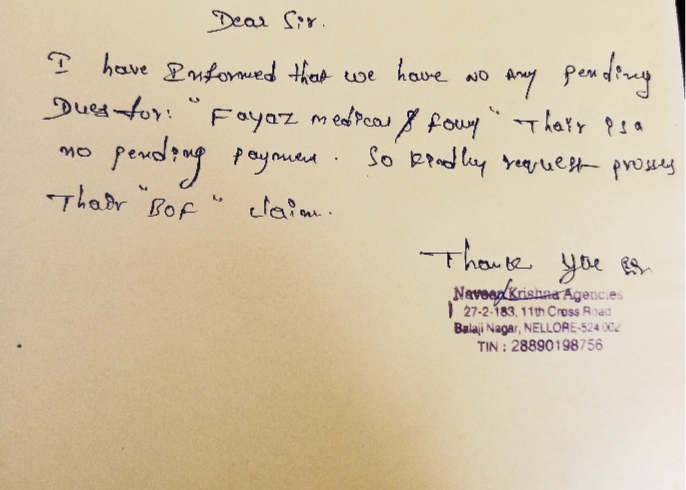 Dear Sir.
I have Informed that we have no any pending
Dues for: "Fayaz medical & fany" Thair is a
no pending payment. So kindly request prosses
Thair "BOF" claim.
Thank you sir
Naveen Krishna Agencies
27-2-183, 11th Cross Road
Balaji Nagar, NELLORE-524 002
TIN : 28890198756